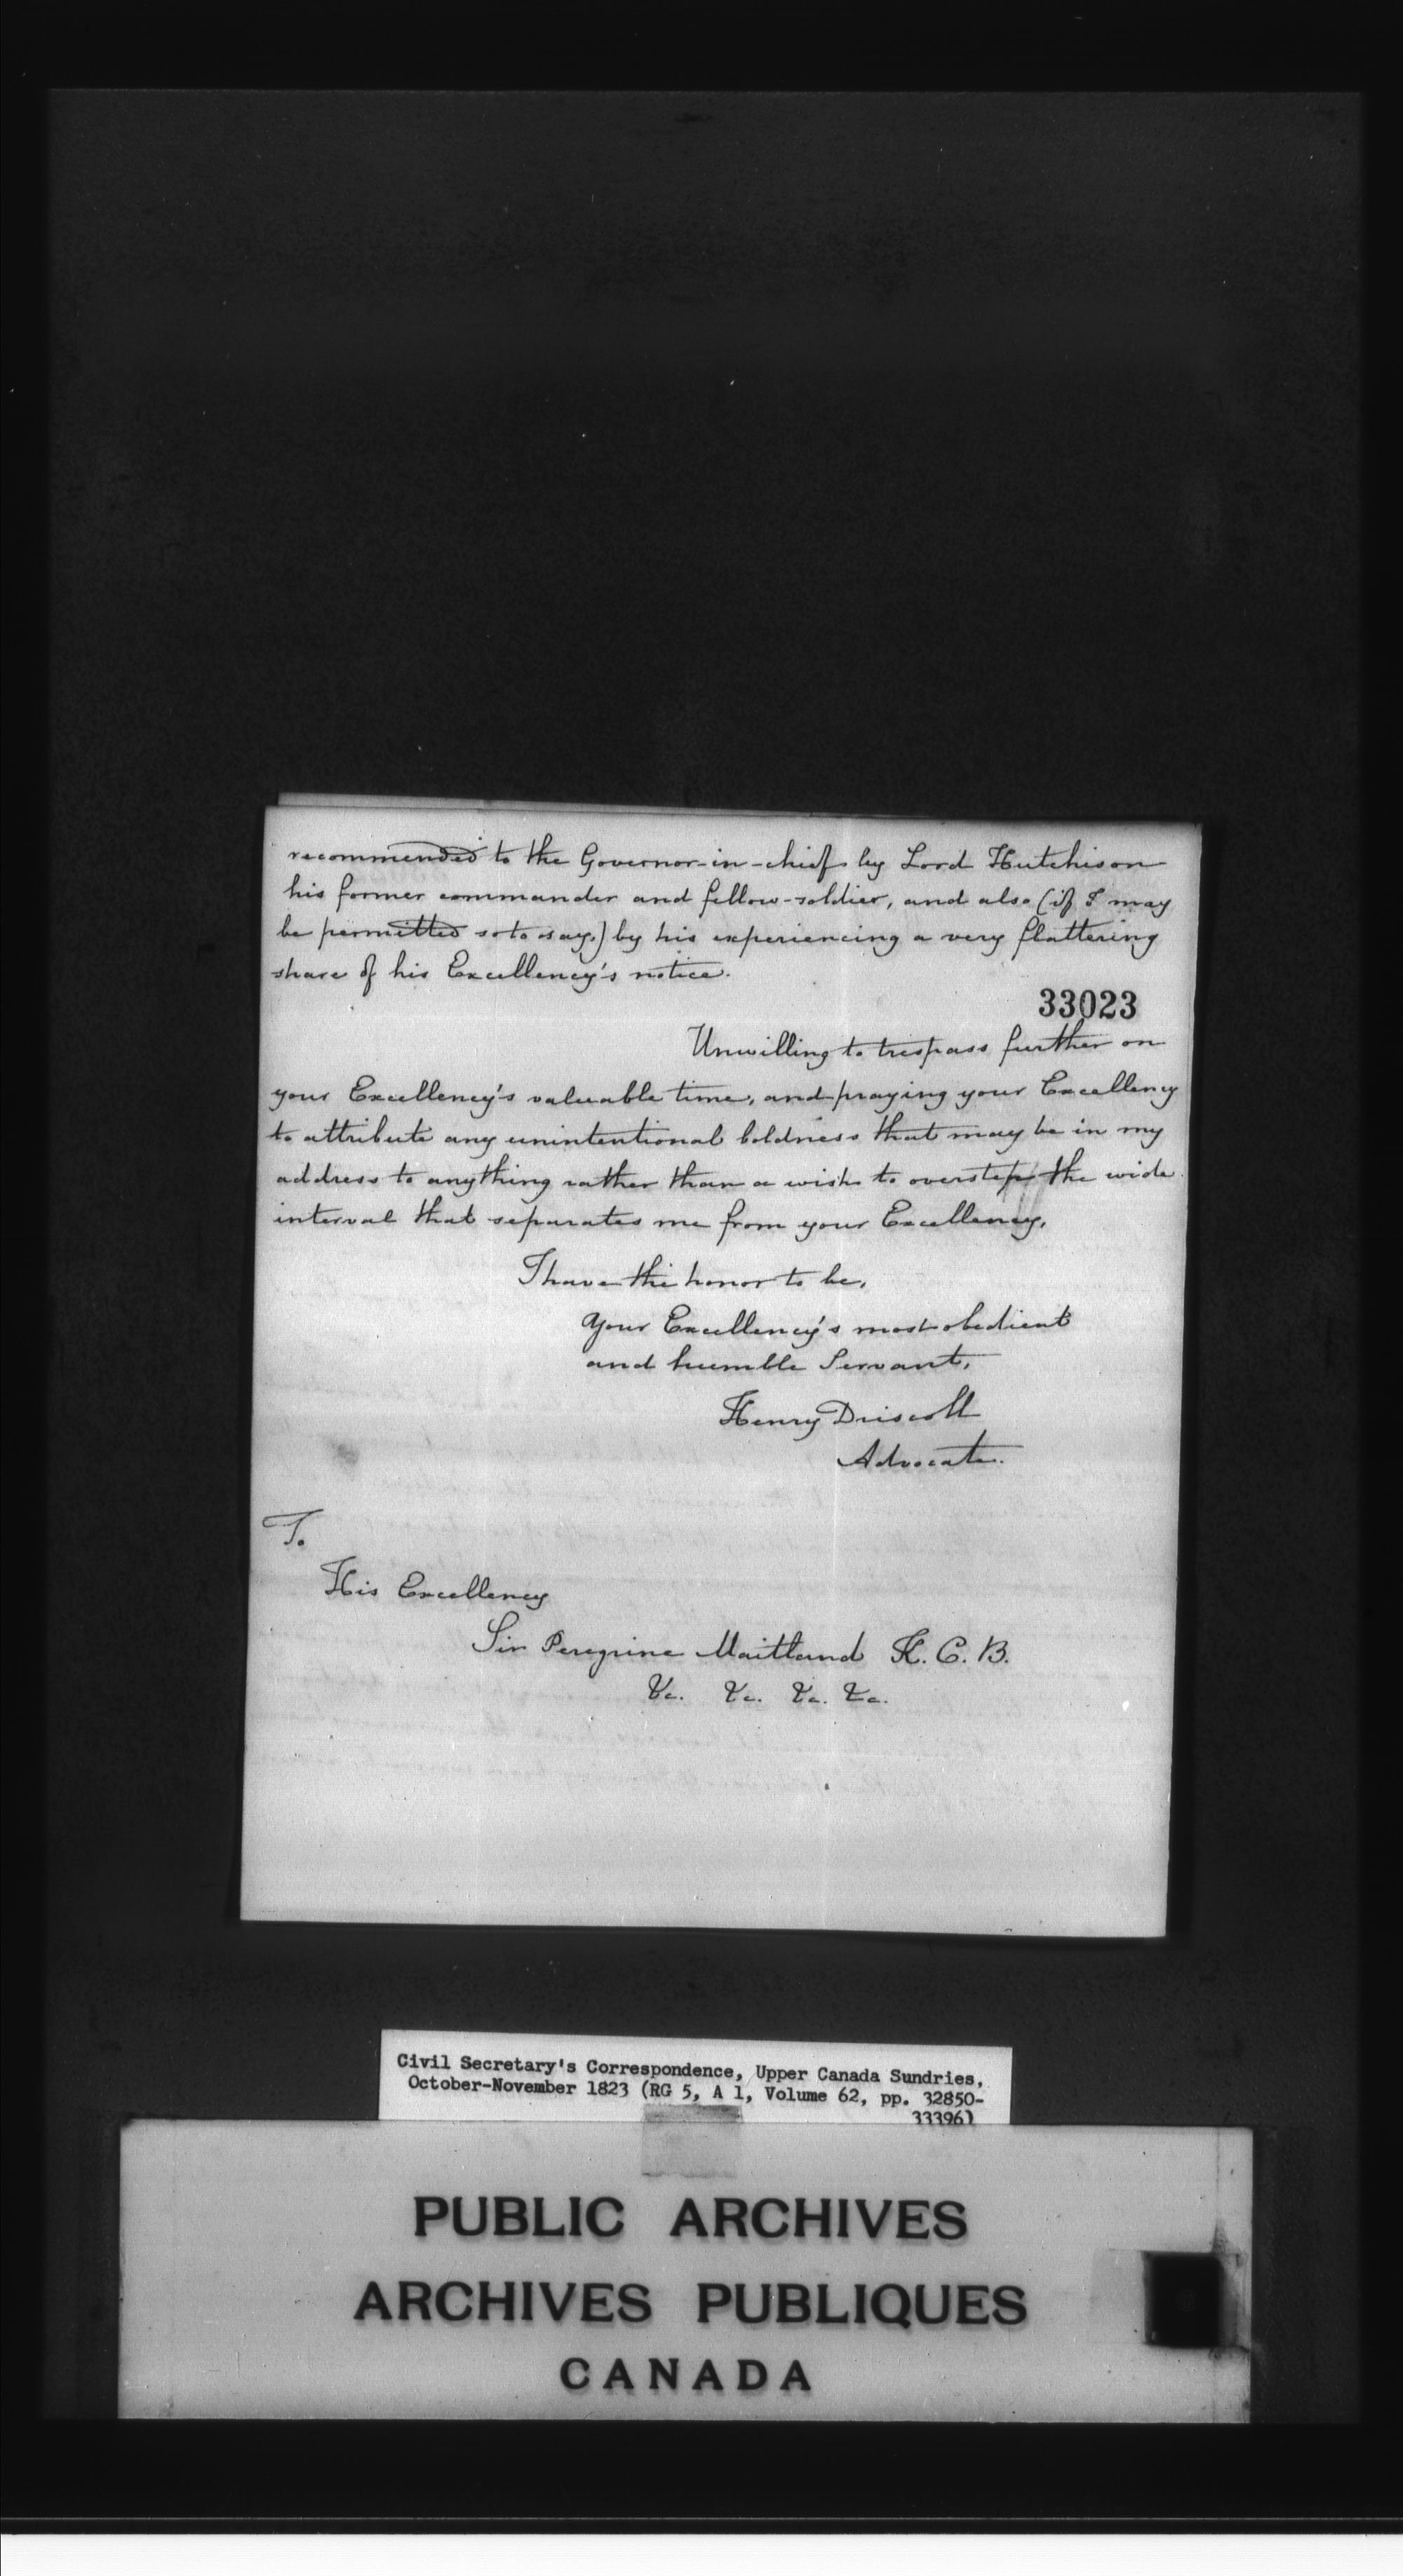 recommended to the Governor-in-chief by Lord Hutchison
his former commander and fellow-soldier, and also (if I may
be permitted so to say,) by his experiencing a very flattering
share of his Excellency's notice.
33023
Unwilling to trespass further on
your Excellency's valuable time, and praying your Excellency
to attribute any unintentional boldness that may be in my
address to anything rather than a wish to overstep the wide
interval that separates me from your Excellency,
I have the honor to be,
Your Excellency's most obedient
and humble Servant,
Henry Driscoll
Advocate.
To
His Excellency
Sir Peregrine Maitland K.C.B.
&c. &c. &c. &c.
Civil Secretary's Correspondence, Upper Canada Sundries,
October-November 1823 (RG 5, A 1, Volume 62, pp. 32850-
33396)
PUBLIC ARCHIVES
ARCHIVES PUBLIQUES
CANADA